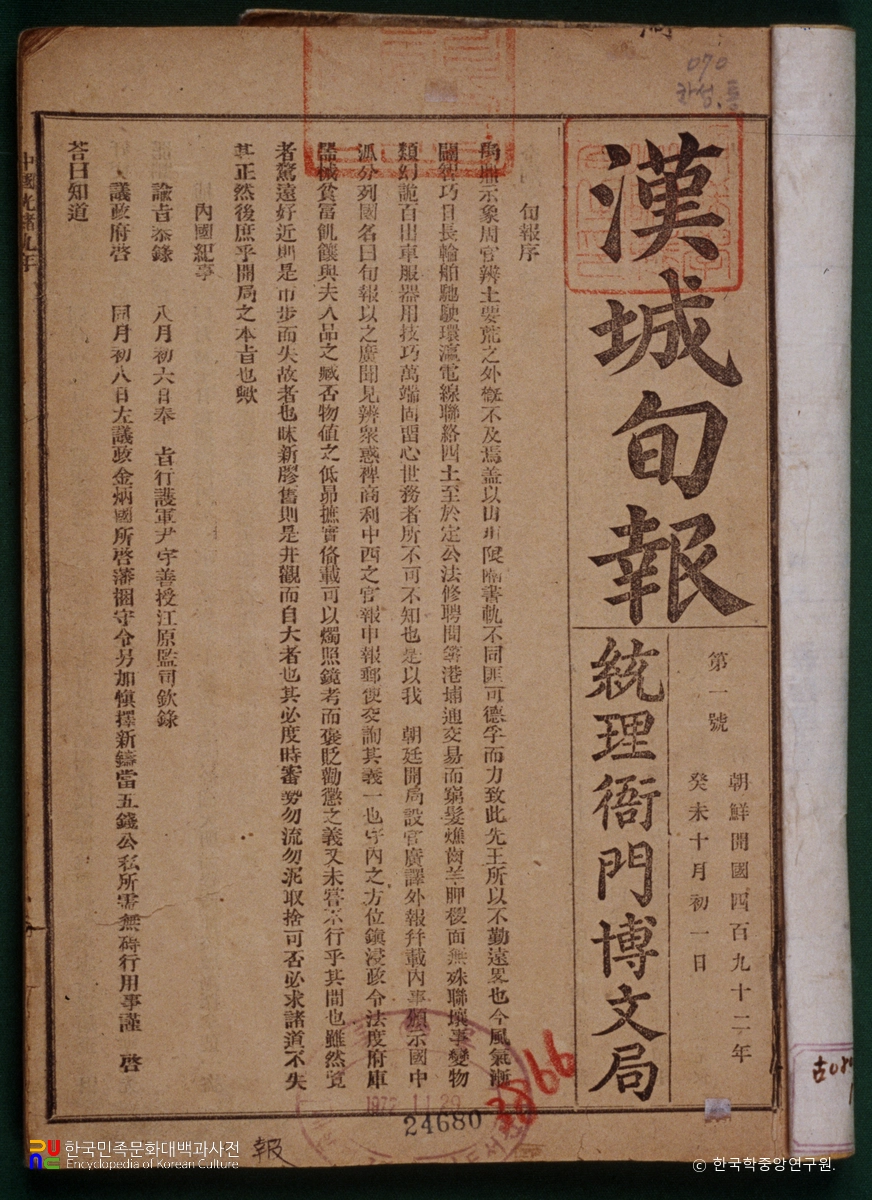 漢城旬報
統理衙門博文局
第一號
朝鮮開國四百九十二年
癸未十月初一日
旬報序
禹鼎示象周官辨土要荒之外槪不及焉盖以山川限隔書軌不同匪可德孚而力致此先王所以不勤遠畧也今風氣漸
闢智巧日長輪舶馳駛環瀛電線聯絡四土至於定公法修聘問築港埔通交易而窮髮燋齒羊胛櫌面無殊聯壤事變物
類幻詭百出車服器用技巧萬端固留心世務者所不可不知也是以我 朝廷開局設官廣譯外報幷載內事頒示國中
派分列國名曰旬報以之廣聞見辨衆惑裨商利中西之官報申報郵便交詢其義一也宇內之方位鎭浸政令法度府庫
器械貧富飢饟與夫人品之臧否物値之低昻摭實俻載可以燭照鏡考而褒貶勸懲之義又未嘗不行乎其間也雖然覽
者驚遠好近則是市步而失故者也昧新膠舊則是井觀而自大者也其必度時審勢勿流勿泥取捨可否必求諸道不失
其正然後庶乎開局之本旨也歟
內國紀事
諭旨恭錄 八月初六日奉 旨行護軍尹宇善授江原監司欽錄
議政府啓 同月初八日左議政金炳國所啓藩梱守令另加愼擇新鑄當五錢公私所需無碍行用事謹 啓
答曰知道
中國光緖九年
070
한성.
1972.11.29
24680
報
한국민족문화대백과사전
Encyclopedia of Korean Culture
© 한국학중앙연구원.